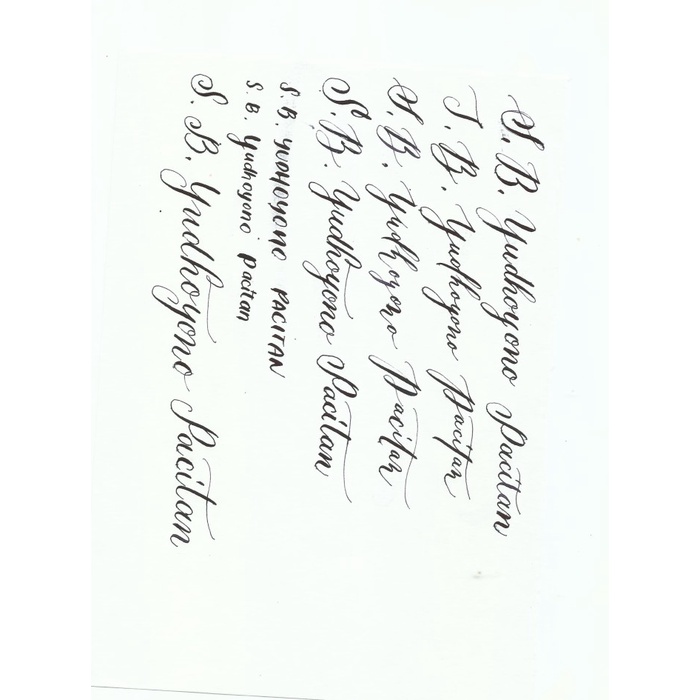 S. B. Yudhoyono Pacitan
S. B. Yudhoyono Pacitan
S. B. Yudhoyono Pacitan
S. B. Yudhoyono Pacitan
S. B. YUDHOYONO PACITAN
S. B. Yudhoyono Pacitan
S. B. Yudhoyono Pacitan